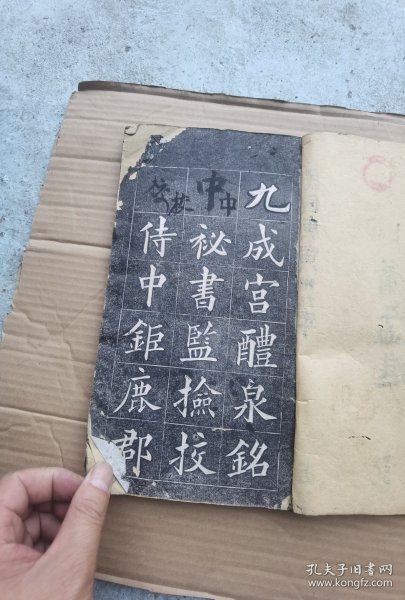 九成宮醴泉銘
中中
祕書監撿挍
校
侍中鉅鹿郡
孔夫子旧书网
www.kongfz.com